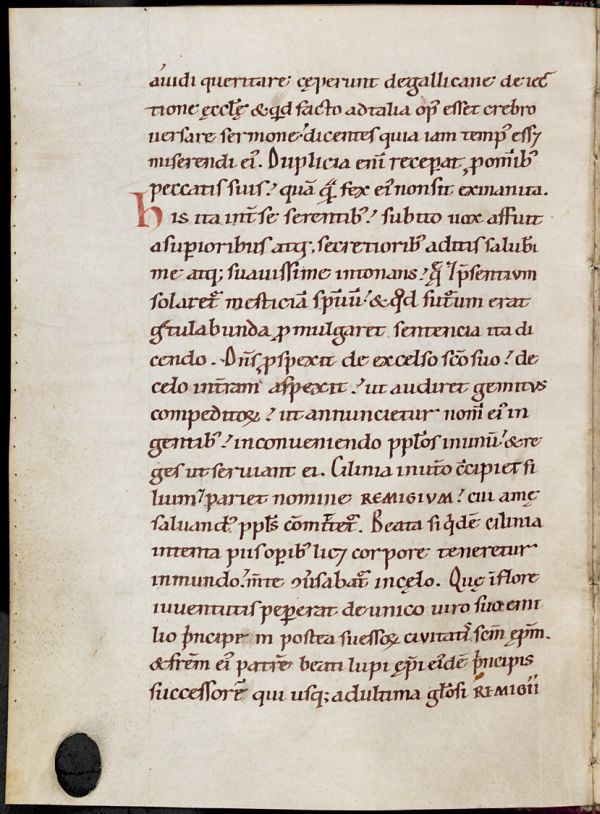 auidi queritare cęperunt degallicane deiec
tione ęcclę & qd facto adtalia op᾿ esset crebro
uersare sermone dicentes quia iam temp᾿ ess&
miserendi ei᾿. Duplicia eni recepat, p omib᾿
peccatis suis? quā fex ei᾿ non sit exinanita.
his ita int̄ se serentib᾿? subito uox affuit
asupioribus atq;, secretiorib᾿ aditis salubi
me atq; suauissime intonans? p̄sentium
solaret᷑ mesticiā & qd᷑ erat
g̃tulabunda p mulgaret sentencia ita di
cendo. Dn̄s pspexit de excelso sc̄o suo? de
celo int̄ram aspexit? ut audiret gemitus
compeditoꝝ? ut annuncietur nom̄ ei᾿ in
gentib᾿? inconueniendo pplōs inunū? & re
ges ut seruiant ei. Cilinia inut̄o c̄cipiet fi
lium? pariet nomine REMIGIVM? cui amę
saluand᾿ ppl̄s cōmit̄et᷑. Beata siqͥdē cilinia
intenta piis opib᾿ lic& corpore teneretur
inmundo? m̄te ꝯuͥsabat᷑ incęlo. Quę iflore
iuuentutis pepererat deunico uiro suo emi
lio pͥncipe in postea suessoꝝ ciuitatͥ sc̄m ęp̄m.
& fr̄em ei᾿ patrē beati lupi ęp̄i ei᾿dē pͥncipis
successorē qui usq; adultima gl̄osi REMIGII